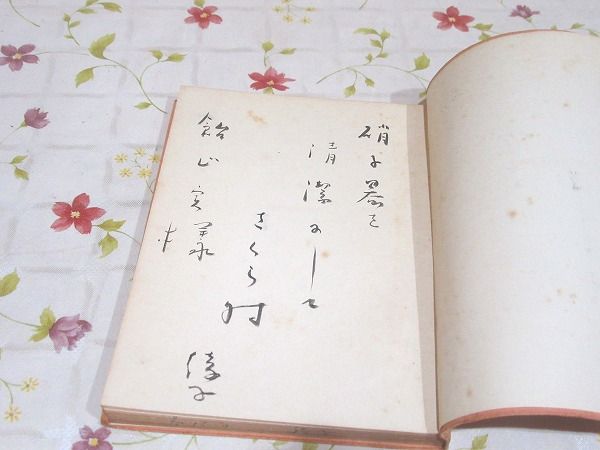 硝子器を
清潔にして
さくら時
綾子
飴山実様